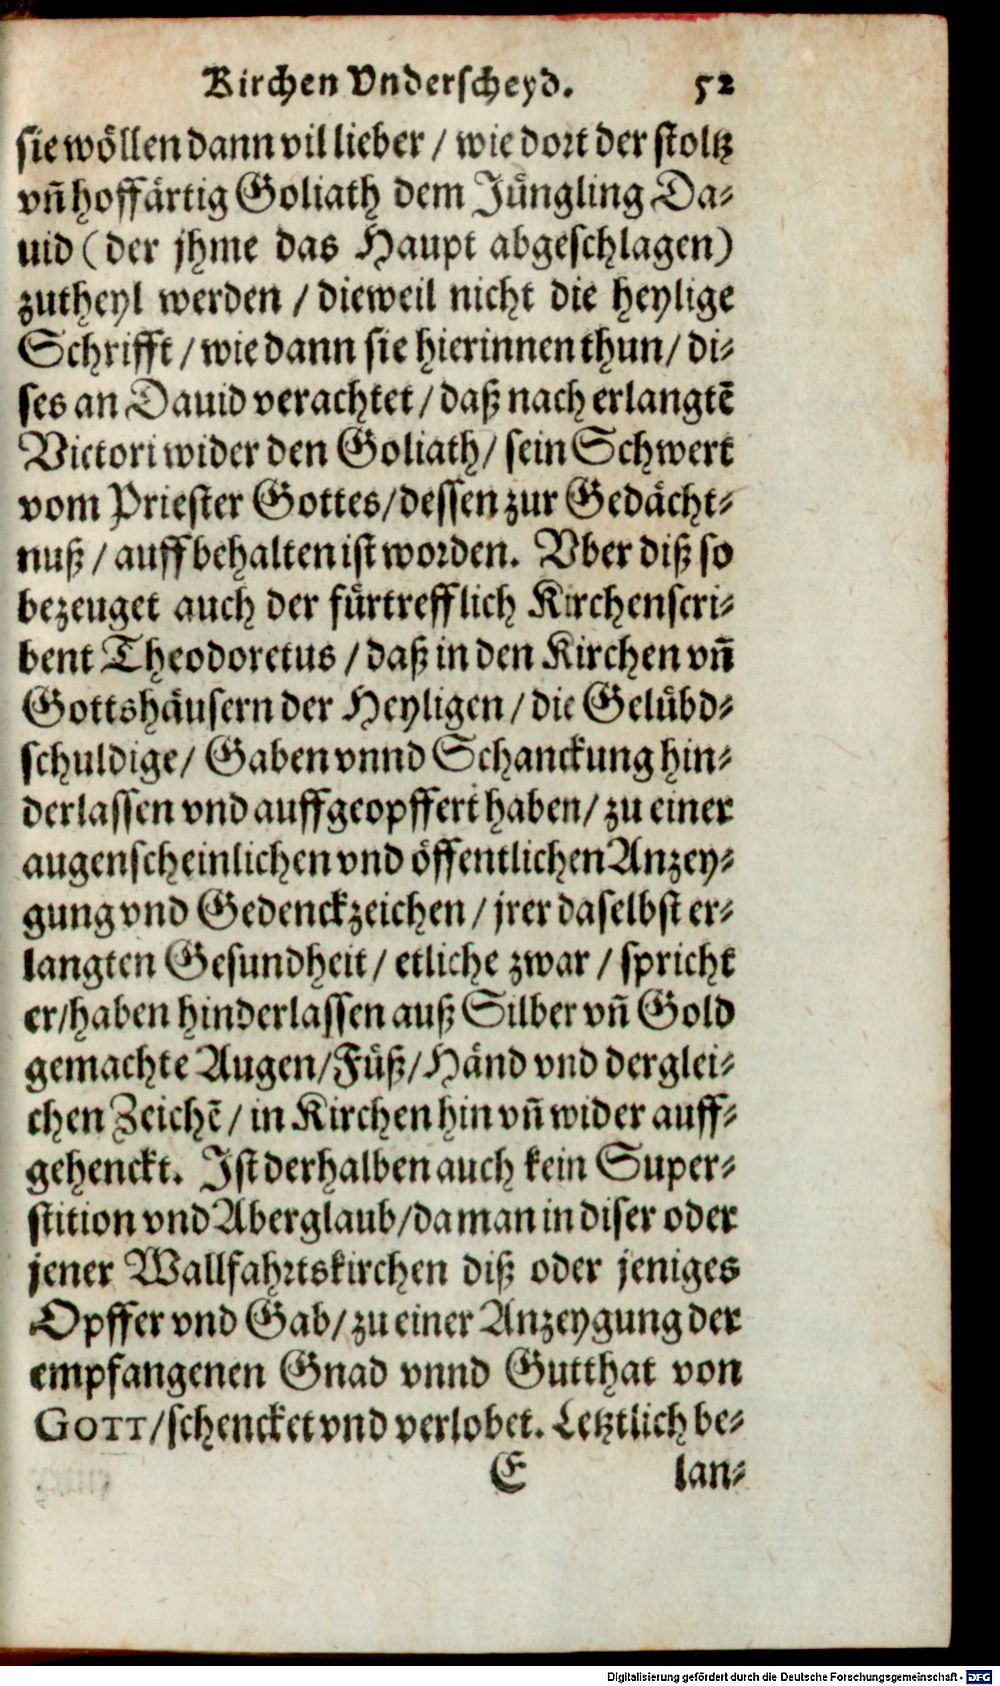 Kirchen Vnderscheyd. 52
sie wöllen dann vil lieber / wie dort der stoltz
vñ hoffärtig Goliath dem Jüngling Da-
uid (der jhme das Haupt abgeschlagen)
zutheyl werden / dieweil nicht die heylige
Schrifft / wie dann sie hierinnen thun / di-
ses an Dauid verachtet / daß nach erlangtẽ
Victori wider den Goliath / sein Schwert
vom Priester Gottes / dessen zur Gedächt-
nuß / auffbehalten ist worden. Vber diß so
bezeuget auch der fürtrefflich Kirchenscri-
bent Theodoretus / daß in den Kirchen vñ
Gottshäusern der Heyligen / die Gelübd-
schuldige / Gaben vnnd Schanckung hin-
derlassen vnd auffgeopffert haben / zu einer
augenscheinlichen vnd öffentlichen Anzey-
gung vnd Gedenckzeichen / jrer daselbst er-
langten Gesundheit / etliche zwar / spricht
er / haben hinderlassen auß Silber vñ Gold
gemachte Augen / Füß / Händ vnd derglei-
chen Zeichẽ / in Kirchen hin vñ wider auff-
gehenckt. Ist derhalben auch kein Super-
stition vnd Aberglaub / da man in diser oder
jener Wallfahrtskirchen diß oder jeniges
Opffer vnd Gab / zu einer Anzeygung der
empfangenen Gnad vnnd Gutthat von
GOTT / schencket vnd verlobet. Letztlich be-
E lan-
Digitalisierung gefördert durch die Deutsche Forschungsgemeinschaft - DFG